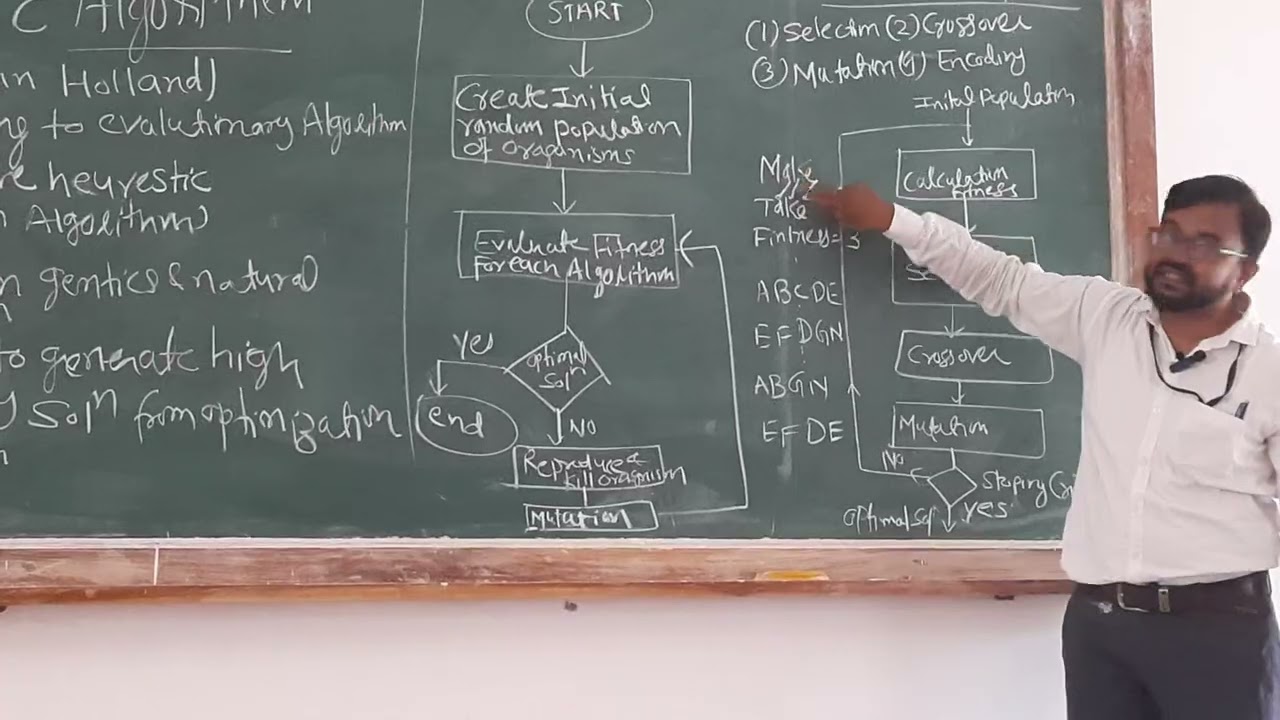 C Algorithem
in Holland)
ng to evalutimary Algorithm
re heurestic
n Algorithm)
n gentics & natural
n
to generate high
y Solⁿ from optimization
n
START
Create Initial
random population
of oraganisms
Evaluate Fitness
Foreach Algorithm
Yes
optimal
Solⁿ
end
NO
Reproduce &
kill oragnism
Mutation
(1) Selectim (2) Crossover
(3) Mutation (4) Encoding
Inital Population
Calculation
Fitness
Make
Take
Fintness = 3
ABCDE
EFDGN
ABGN
EFDE
Crossover
Mutation
No
Stoping
Yes
optimal Sol